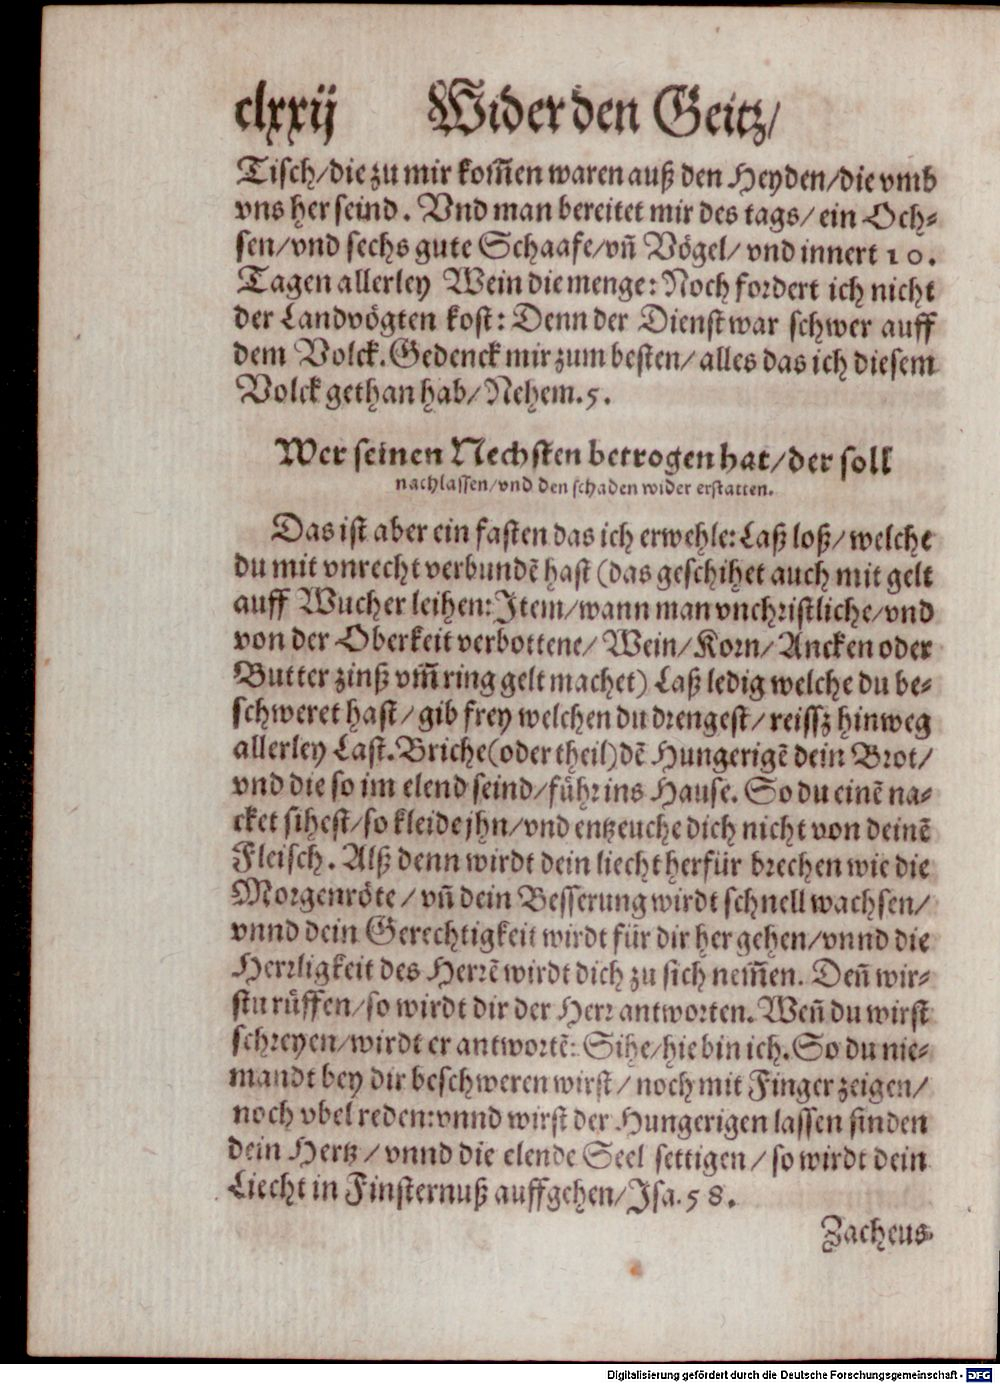 clxxij Wider den Geitz/
Tisch/die zu mir kom̃en waren auß den Heyden/die vmb
vns her seind. Vnd man bereitet mir des tags/ ein Och-
sen/vnd sechs gute Schaafe/vñ Vögel/ vnd innert 10.
Tagen allerley Wein die menge: Noch fordert ich nicht
der Landvögten kost: Denn der Dienst war schwer auff
dem Volck. Gedenck mir zum besten/ alles das ich diesem
Volck gethan hab/ Nehem. 5.
Wer seinen Nechsten betrogen hat/der soll
nachlassen/vnd den schaden wider erstatten.
Das ist aber ein fasten das ich erwehle: Laß loß/ welche
du mit vnrecht verbundẽ hast (das geschihet auch mit gelt
auff Wucher leihen: Item/wann man vnchristliche/vnd
von der Oberkeit verbottene/ Wein/ Korn/ Ancken oder
Butter zinß vm̃ ring gelt machet) Laß ledig welche du be-
schweret hast/ gib frey welchen du drengest/ reissz hinweg
allerley Last. Briche (oder theil) dẽ Hungerigẽ dein Brot/
vnd die so im elend seind/führ ins Hause. So du einẽ na-
cket sihest/so kleide jhn/vnd entzeuche dich nicht von deinẽ
Fleisch. Alß denn wirdt dein liecht herfür brechen wie die
Morgenröte/ vñ dein Besserung wirdt schnell wachsen/
vnnd dein Gerechtigkeit wirdt für dir her gehen/vnnd die
Herrligkeit des Herrẽ wirdt dich zu sich nem̃en. Deñ wir-
stu rüffen/so wirdt dir der Herr antworten. Weñ du wirst
schreyen/wirdt er antwortẽ: Sihe/hie bin ich. So du nie-
mandt bey dir beschweren wirst/ noch mit Finger zeigen/
noch vbel reden: vnnd wirst der Hungerigen lassen finden
dein Hertz/ vnnd die elende Seel settigen/ so wirdt dein
Liecht in Finsternuß auffgehen/Isa. 58.
Zacheus
Digitalisierung gefördert durch die Deutsche Forschungsgemeinschaft - DFG